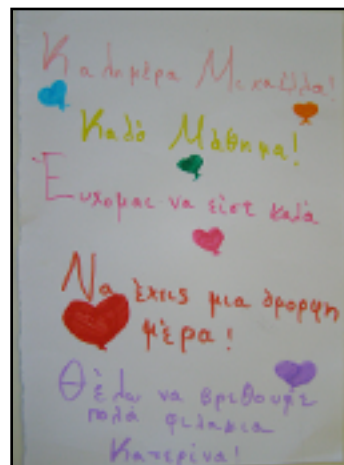 Καλημέρα Μιχαέλλα!
Καλό Μάθημα!
Εύχομαι να είσι καλά
Να έχεις μια όμορφη
μέρα!
Θέλω να βρεθούμε
πολά φιλάκια
Κατερίνα!